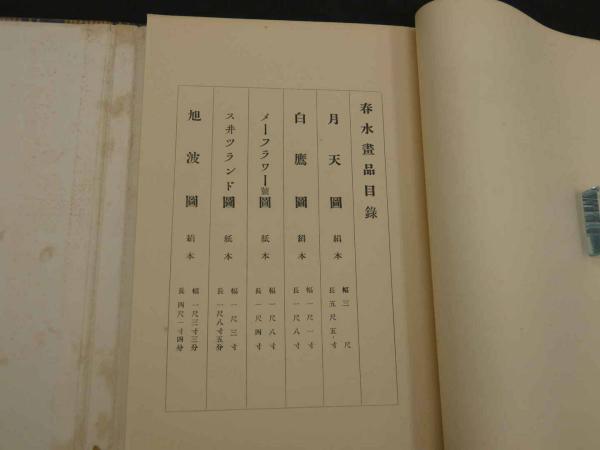 春水畫品目錄
月天圖 絹本 幅三尺 長五尺五寸
白鷹圖 絹本 幅一尺一寸 長一尺八寸
メーフラワー號圖 紙本 幅一尺八寸 長一尺四寸
ス井ツランド圖 紙本 幅一尺三寸 長一尺八寸五分
旭波圖 絹本 幅一尺三寸三分 長四尺一寸四分